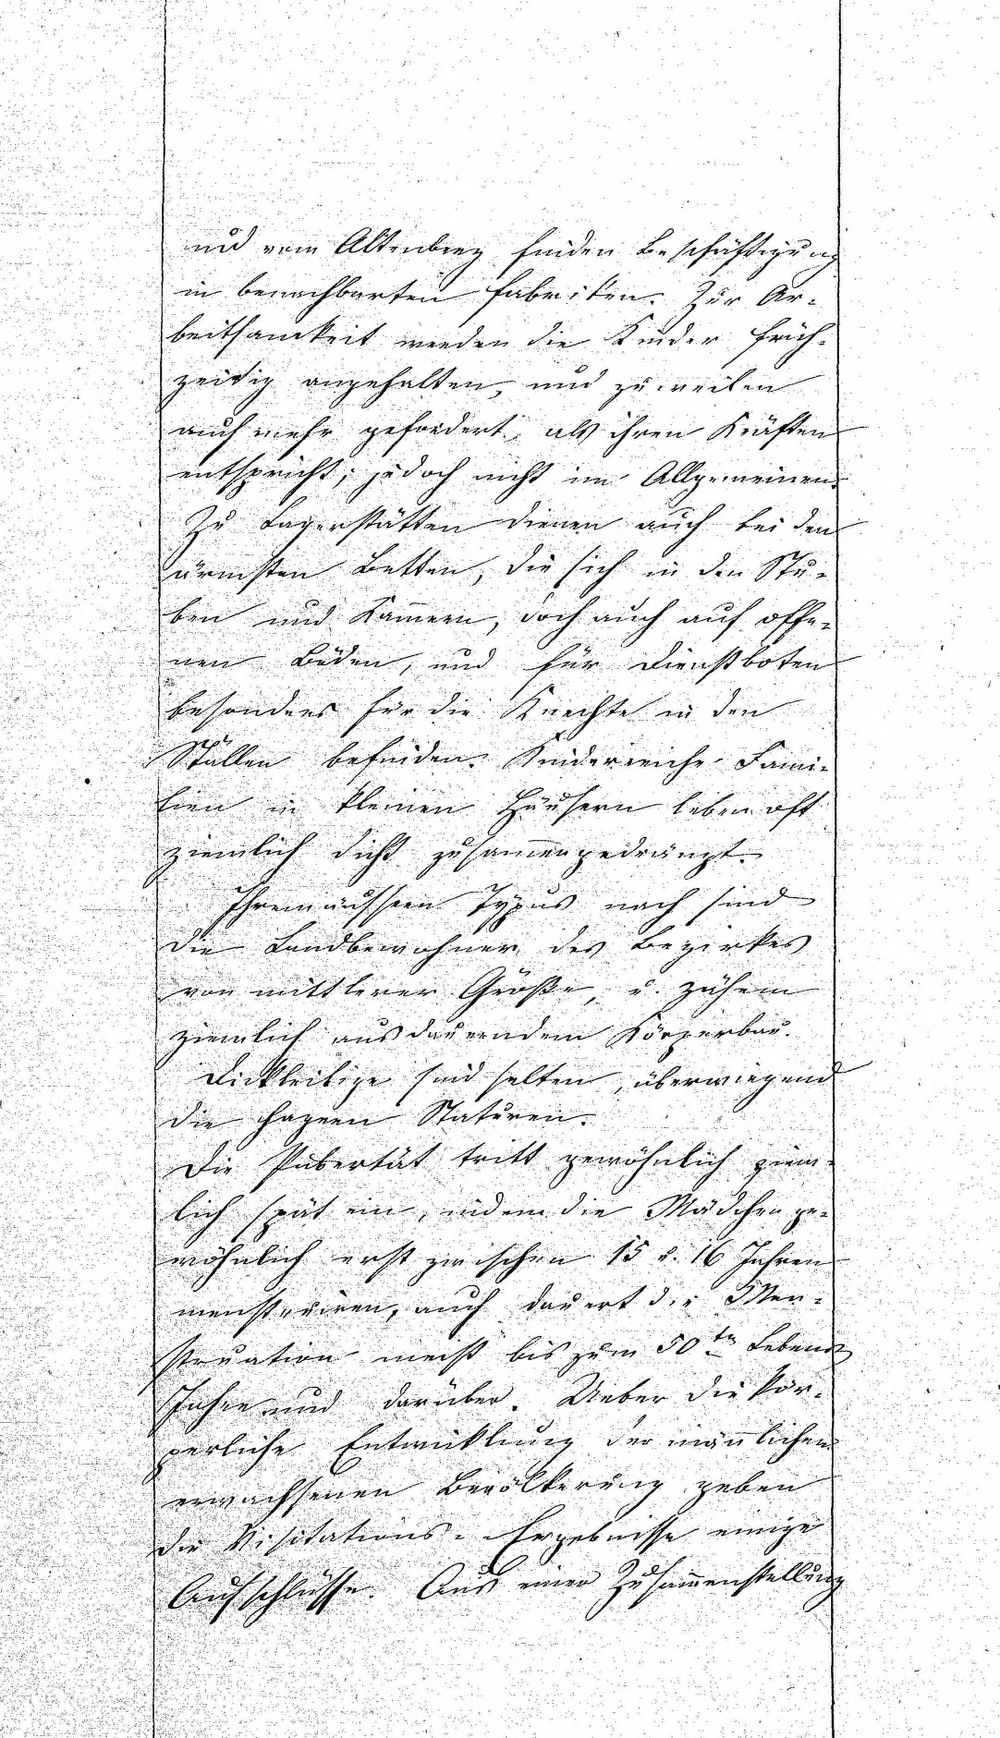 und vom Altenberg finden Beschäftigung
in benachbarten Fabriken. Zur Ar-
beitsamkeit werden die Kinder früh-
zeitig angehalten, und zuweilen
auch mehr gefordert, als ihren Kräften
entspricht, jedoch nicht im Allgemeinen.
Zu Lagerstätten dienen auch bei den
ärmsten Betten, die sich in den Stu-
ben und Kam̄ern, doch auch auf offe-
nen Böden, und für Dienstboten
besonders für die Knechte in den
Ställen befinden. Kinderreiche Fami-
lien in kleinen Häusern leben oft
ziemlich dicht zusam̄engedrängt.
Ihrem äussern Typus nach sind
die Landbewohner des Bezirkes
von mittlerer Größe, u. zähem
ziemlich ausdauerndem Körperbau.
Dickleibige sind selten, überwiegend
die hagern Staturen.
Die Pubertät tritt gewöhnlich ziem-
lich spät ein, indem die Mädchen ge-
wöhnlich erst zwischen 15 u. 16 Jahren
menstruiren, auch dauert die Men-
struation meist bis zum 50ten Lebens
Jahre und darüber. Ueber die kör-
perliche Entwicklung der män̄lichen
erwachsenen Bevölkerung geben
die Visitations-Ergebnisse einige
Aufschlüsse. Aus einer Zusam̄enstellung